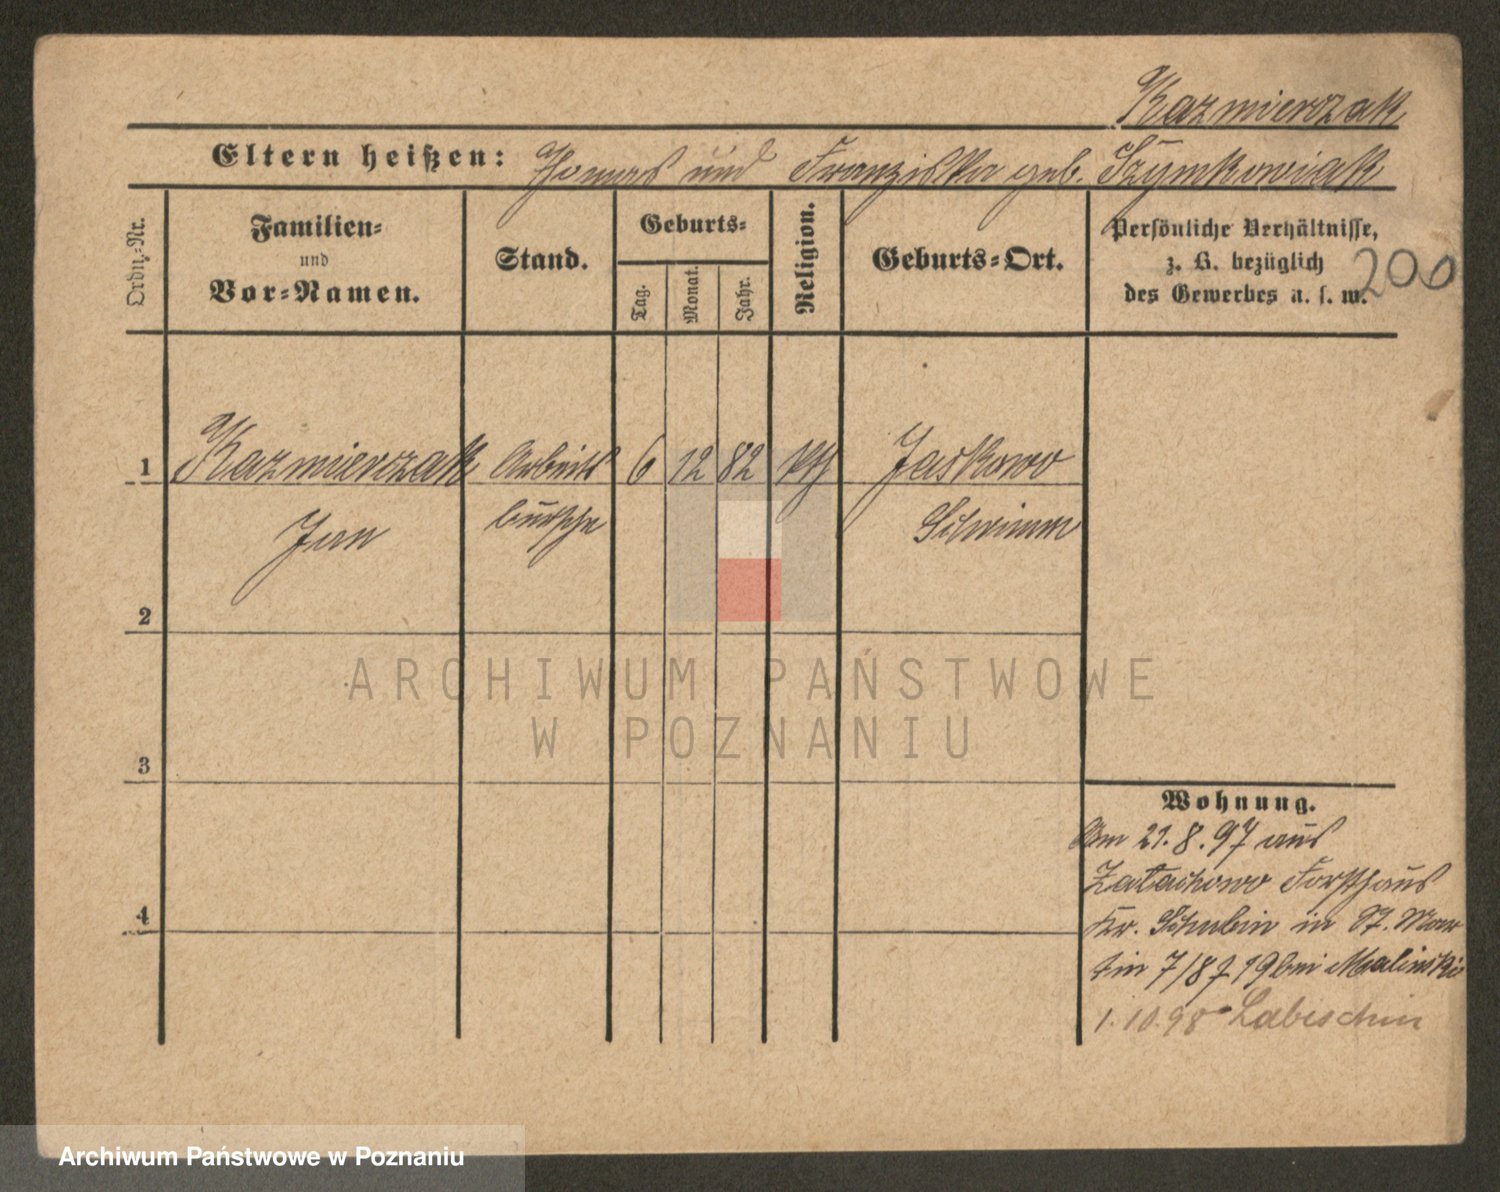 Kazmierczak
Eltern heißen: Thomas und Franziska geb. Szymkowiak
Ordn.-Nr.
Familien- und Vor-Namen.
Stand.
Geburts-
Tag.
Monat.
Jahr.
Religion.
Geburts-Ort.
Persönliche Verhältnisse,
z. B. bezüglich
des Gewerbes u. s. w.
200
1 Kazmierczak Arbeits 6 12 82 kth Jaskowo
Jan bursche Schrimm
2
3
4
Wohnung.
Am 21.8.97 aus
Zalachowo Forsthaus
Kr. Schubin in St. Mar
tin 7/8 19 bei Malinski
1.10.98 Labischin
ARCHIWUM PAŃSTWOWE
W POZNANIU
Archiwum Państwowe w Poznaniu